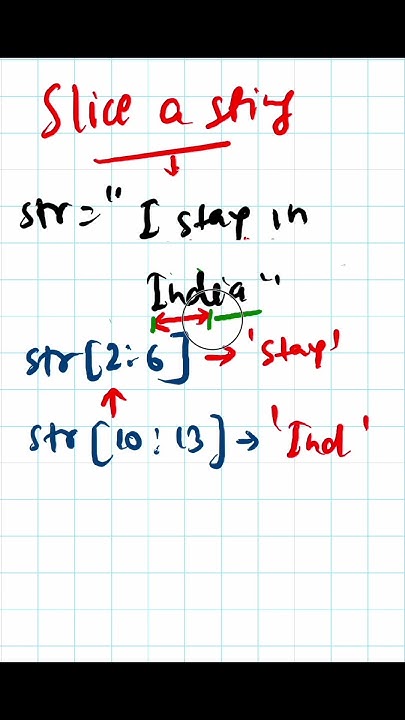 Slice a string
str = " I stay in
India "
str [2:6] → 'stay'
str [10:13] → 'Ind'